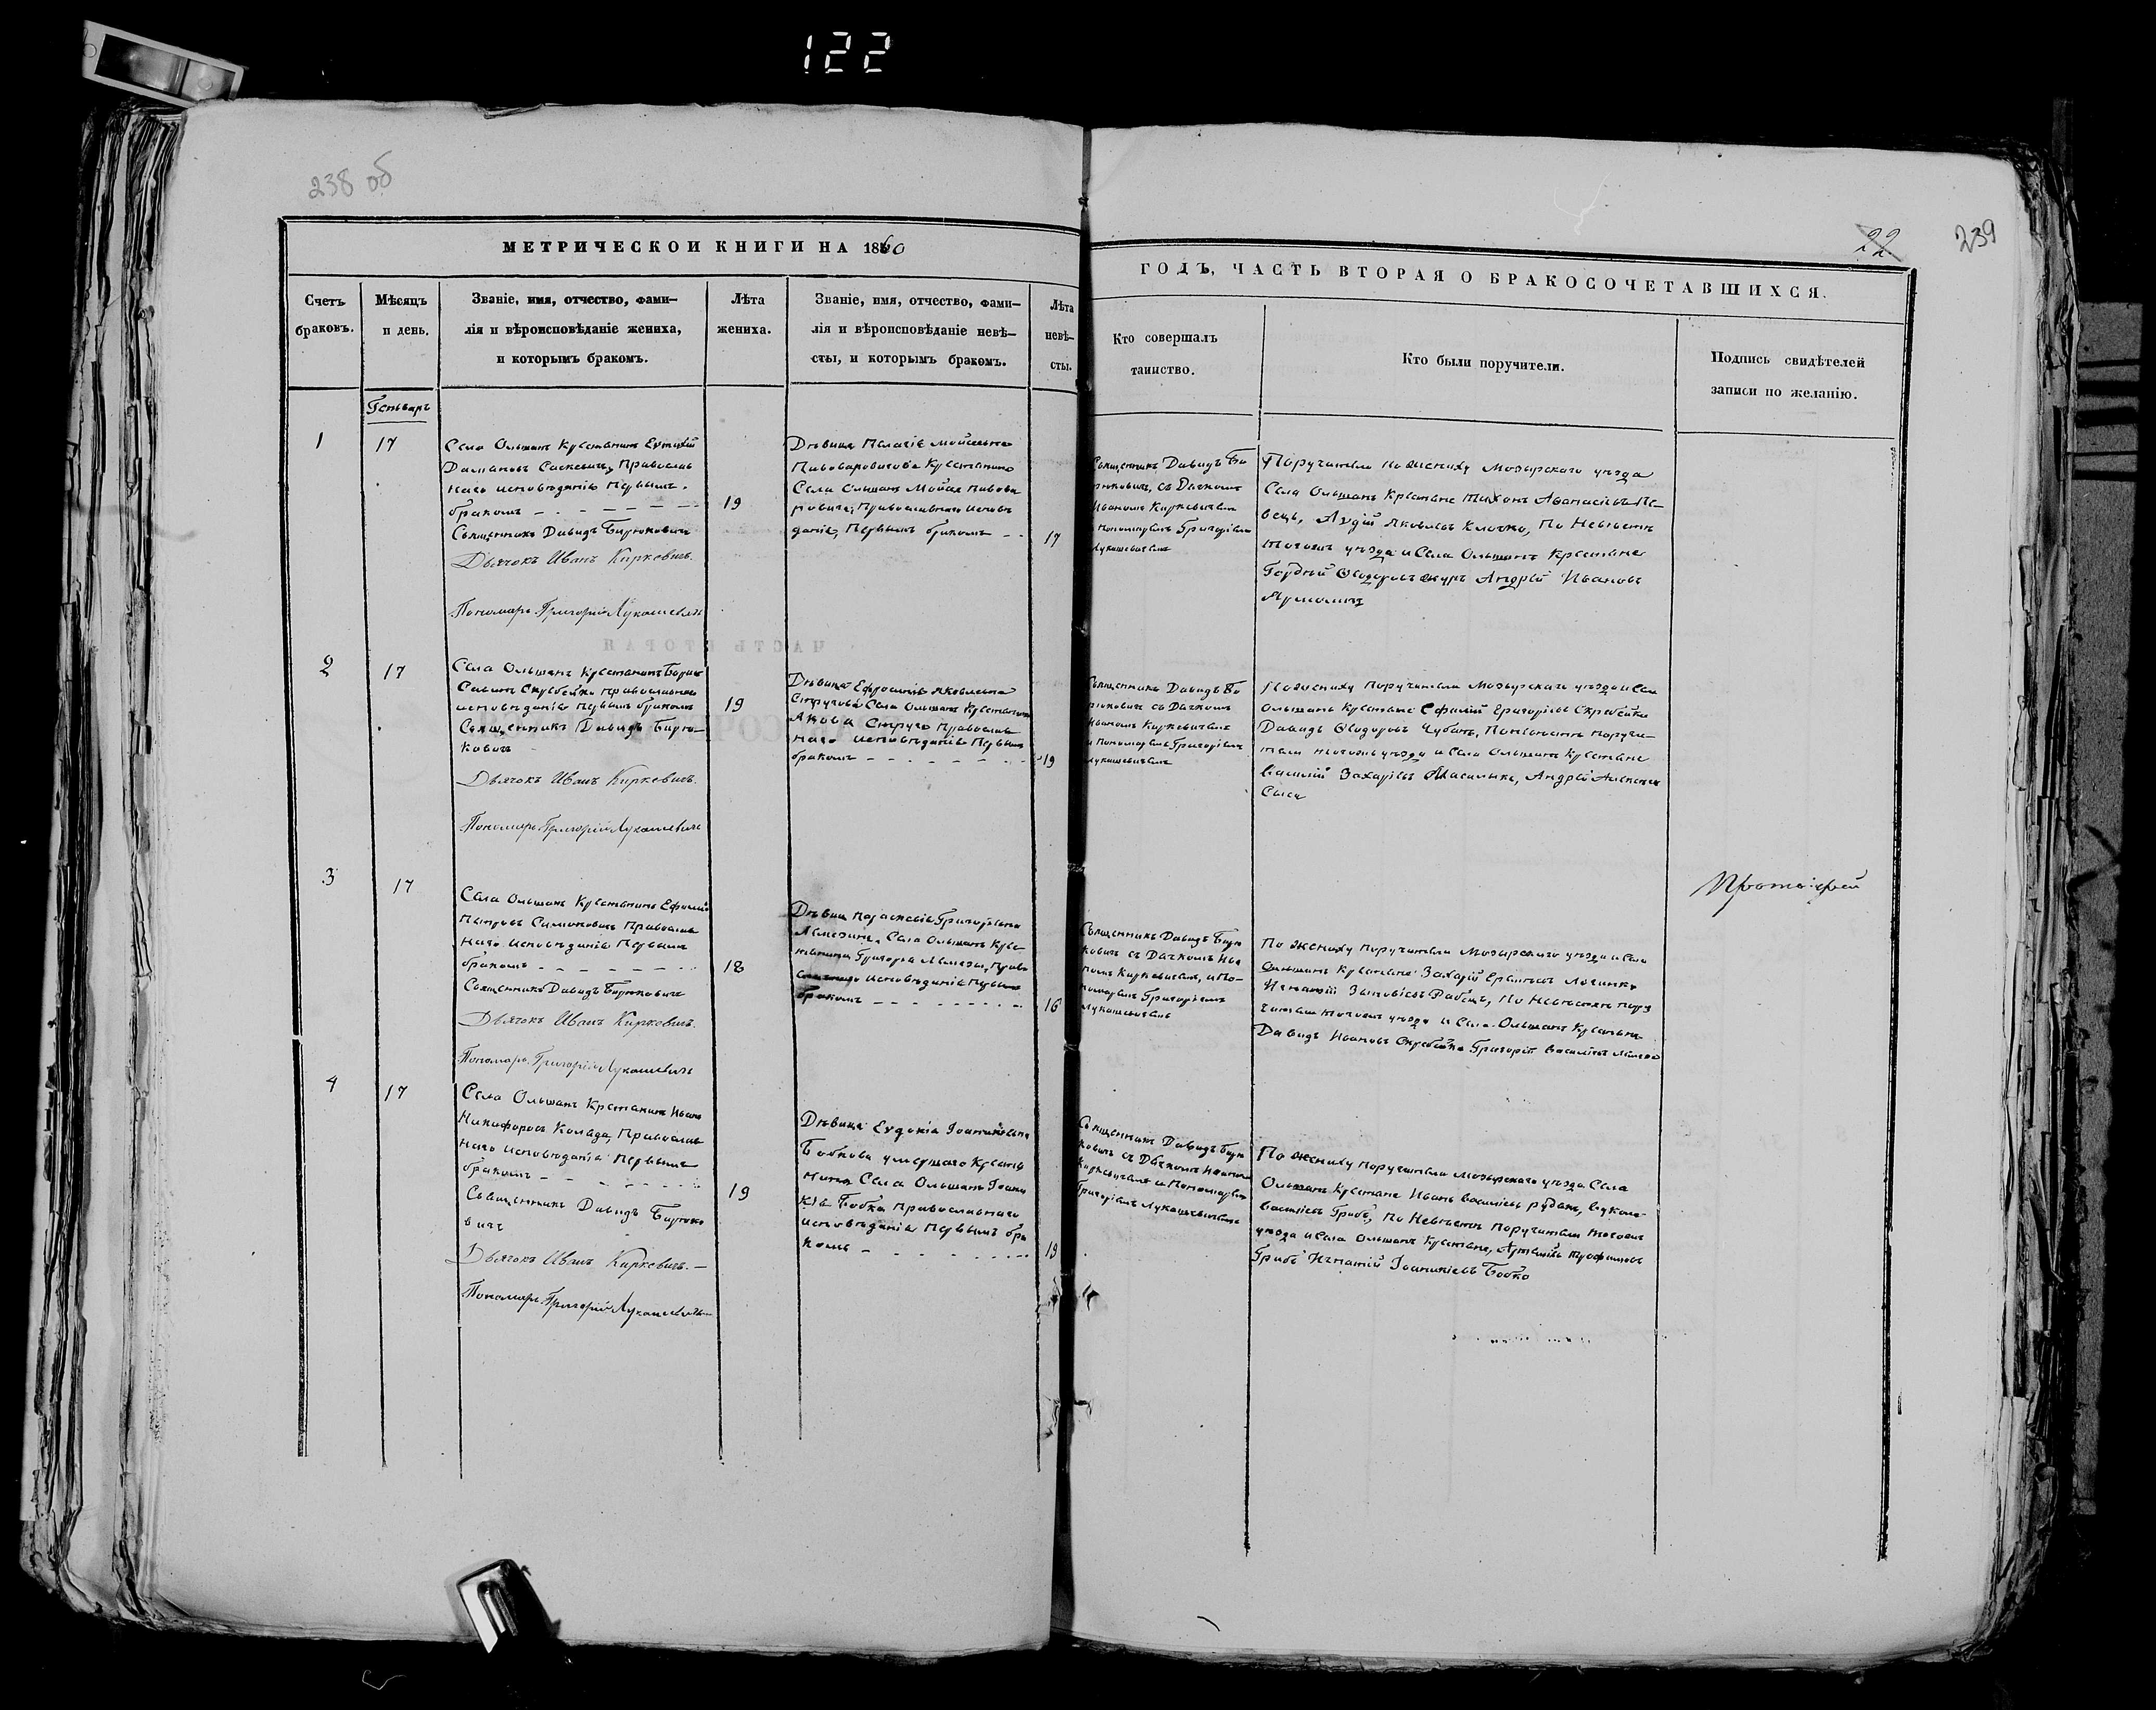 122
238 об
22
239
МЕТРИЧЕСКОЙ КНИГИ НА 1860
ГОДЪ, ЧАСТЬ ВТОРАЯ О БРАКОСОЧЕТАВШИХСЯ.
Счетъ
браковъ.
Мѣсяцъ
и день.
Званіе, имя, отчество, фами-
лія и вѣроисповѣданіе жениха,
и которымъ бракомъ.
Лѣта
жениха.
Званіе, имя, отчество, фами-
лія и вѣроисповѣданіе невѣ-
сты, и которымъ бракомъ.
Лѣта
невѣ-
сты.
Кто совершалъ
таинство.
Кто были поручители.
Подпись свидѣтелей
записи по желанію.
Генваръ
1
17
Села Ольшанъ Крестьянинъ Евтихій
Православ
наго исповѣданія Первымъ
бракомъ
Священникъ Давидъ Бирюковичъ
Дьячокъ Иванъ Киркевичъ.
Пономарь Григорій Лукашевичъ
19
Дѣвица Пелагія Мойсеева
Пивоваровичова Крестьянина
Села Ольшанъ Мойсея Пивова
ровича, Православнаго Исповѣ
данія, Первымъ бракомъ
17
Священникъ Давидъ Би
рюковичъ, съ Дьячкомъ
Иваномъ Киркевичемъ
Пономаремъ Григоріемъ
Лукашевичемъ
Поручители по жениху Мозырскаго уѣзда
Села Ольшанъ Крестьяне Тихонъ Аѳанасіевъ Пе-
вецъ, Яковлевъ Клочко, По Невѣстѣ
тогожъ уѣзда и Села Ольшанъ Крестьяне
Гордѣй Ѳеодоровъ Андрей Ивановъ
2
17
Села Ольшанъ Крестьянинъ Борисъ
Савинъ Скребейко православнаго
исповѣданія Первымъ бракомъ
Священникъ Давидъ Бирю-
ковичъ
Дьячокъ Иванъ Киркевичъ.
Пономарь Григорій Лукашевичъ
19
Дѣвица Ефросинія Яковлева
Стругова Села Ольшанъ Крестьянина
Якова Струга Православ
наго исповѣданія Первымъ
бракомъ
19
Священникъ Давидъ Би
рюковичъ съ Дьячкомъ
Иваномъ Киркевичемъ
и Пономаремъ Григоріемъ
Лукашевичемъ
По жениху Поручители Мозырскаго уѣзда и Села
Ольшанъ Крестьяне Григоріевъ Скребейко
Давидъ Ѳеодоровъ Чубатъ, По невѣстѣ поручи-
тели тогожъ уѣзда и Села Ольшанъ Крестьяне
Василій Захаріевъ Андрей
3
17
Села Ольшанъ Крестьянинъ
Петровъ Симоновичъ Православ
наго Исповѣданія Первымъ
бракомъ
Священникъ Давидъ Бирюковичъ
Дьячокъ Иванъ Киркевичъ.
Пономарь Григорій Лукашевичъ
18
Дѣвица Параскевія Григорьева
Села Ольшанъ Крес
тьянина Григорія Право
славнаго исповѣданія Первымъ
бракомъ
16
Священникъ Давидъ Бирю
ковичъ съ Дьячкомъ Ива
номъ Киркевичемъ, и По-
номаремъ Григоріемъ
Лукашевичемъ
По жениху поручители Мозырскаго уѣзда и Села
Ольшанъ Крестьяне Захарій
Игнатій Зиновіевъ По Невѣстѣ пору
чители тогожъ уѣзда и Села Ольшанъ Крестьяне
Давидъ Ивановъ Скребейко Григорій Василіевъ
Протоіерей
4
17
Села Ольшанъ Крестьянинъ Иванъ
Никифоровъ Коляда, Православ
наго исповѣданія Первымъ
бракомъ
Священникъ Давидъ Бирюко
вичъ
Дьячокъ Иванъ Киркевичъ.
Пономарь Григорій Лукашевичъ
19
Дѣвица Евдокія Іоаникіева
Бобкова умершаго Крестья
нина Села Ольшанъ Іоани
кія Бобка Православнаго
исповѣданія Первымъ бра
комъ
19
Священникъ Давидъ Бирю
ковичъ съ Дьячкомъ Иваномъ
Киркевичемъ и Пономаремъ
Григоріемъ Лукашевичемъ
По жениху поручители Мозырскаго уѣзда Села
Ольшанъ Крестьяне Иванъ Василіевъ
Василіевъ Грибъ, По Невѣстѣ Поручители тогожъ
уѣзда и Села Ольшанъ Крестьяне, Трофимовъ
Грибъ Игнатій Іоаникіевъ Бобко